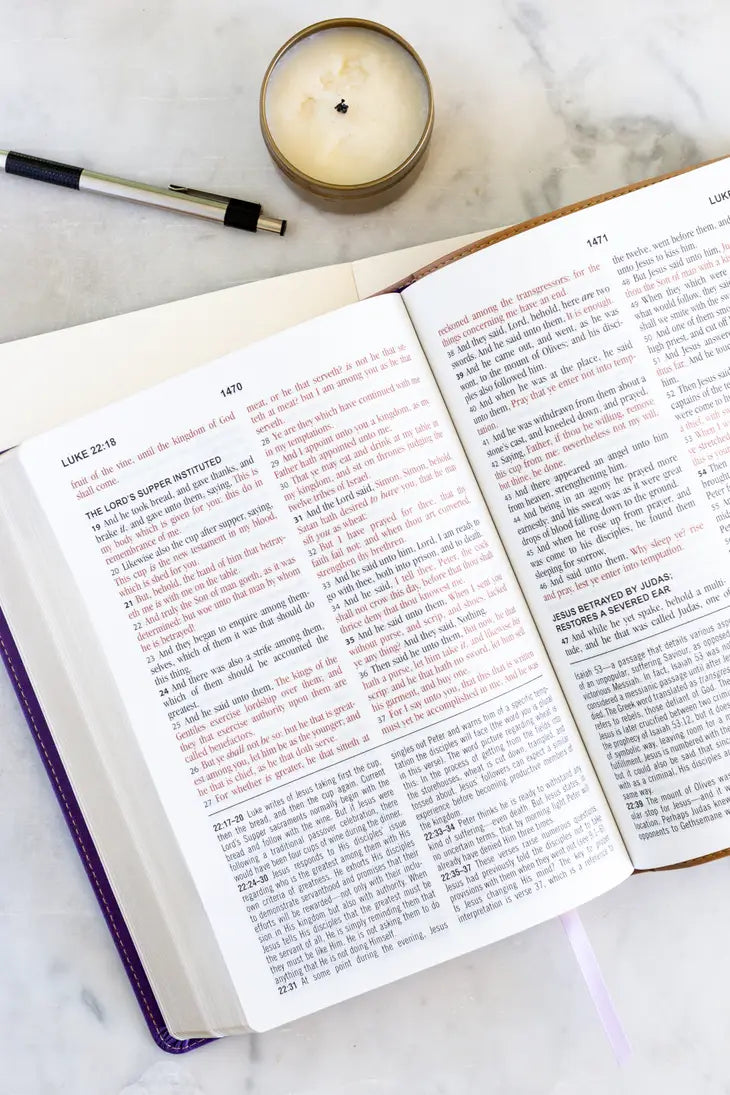 LUKE 22:18
1470
fruit of the vine, until the kingdom of God
shall come.
THE LORD'S SUPPER INSTITUTED
19 And he took bread, and gave thanks, and
brake it, and gave unto them, saying, This is
my body which is given for you: this do in
remembrance of me.
20 Likewise also the cup after supper, saying,
This cup is the new testament in my blood,
which is shed for you.
21 But, behold, the hand of him that betray-
eth me is with me on the table.
22 And truly the Son of man goeth, as it was
determined: but woe unto that man by whom
he is betrayed!
23 And they began to enquire among them-
selves, which of them it was that should do
this thing.
24 And there was also a strife among them,
which of them should be accounted the
greatest.
25 And he said unto them, The kings of the
Gentiles exercise lordship over them; and
they that exercise authority upon them are
called benefactors.
26 But ye shall not be so: but he that is great-
est among you, let him be as the younger; and
he that is chief, as he that doth serve.
27 For whether is greater, he that sitteth at
meat, or he that serveth? is not he that sit-
teth at meat? but I am among you as he that
serveth.
28 Ye are they which have continued with me
in my temptations.
29 And I appoint unto you a kingdom, as my
Father hath appointed unto me;
30 That ye may eat and drink at my table in
my kingdom, and sit on thrones judging the
twelve tribes of Israel.
31 And the Lord said, Simon, Simon, behold,
Satan hath desired to have you, that he may
sift you as wheat:
32 But I have prayed for thee, that thy
faith fail not: and when thou art converted,
strengthen thy brethren.
33 And he said unto him, Lord, I am ready to
go with thee, both into prison, and to death.
34 And he said, I tell thee, Peter, the cock
shall not crow this day, before that thou shalt
thrice deny that thou knowest me.
35 And he said unto them, When I sent you
without purse, and scrip, and shoes, lacked
ye any thing? And they said, Nothing.
36 Then said he unto them, But now, he that
hath a purse, let him take it, and likewise his
scrip: and he that hath no sword, let him sell
his garment, and buy one.
37 For I say unto you, that this that is written
must yet be accomplished in me, And he was
22:17-20 Luke writes of Jesus taking first the cup,
then the bread, and then the cup again. Current
Lord's Supper sacraments normally begin with the
bread and follow with the wine. But if Jesus were
following a traditional Passover celebration, there
would have been four cups of wine during the dinner.
22:24-30 Jesus responds to His disciples' issue
regarding who is the greatest among them with His
own criteria of greatness. He exhorts His disciples
to demonstrate servanthood and promises that their
efforts will be rewarded—not only with their inclu-
sion in His kingdom but also with authority. When
Jesus tells His disciples that the greatest must be
the servant of all, He is simply reminding them that
they must be like Him. He is not asking them to do
anything that He is not doing Himself.
22:31 At some point during the evening, Jesus
singles out Peter and warns him of a specific temp-
tation the disciples will face (the word you is plural
in this verse). The word picture regarding wheat is
this: In the process of getting from the fields into
the storehouses, which is cut down, trampled, and
tossed about. Jesus' followers can expect a similar
experience before becoming productive members of
the kingdom.
22:33-34 Peter thinks he is ready to withstand any
kind of suffering—even death. But Jesus states in
no uncertain terms, that by morning light Peter will
already have denied Him three times.
22:35-37 These verses raise numerous questions.
Jesus had previously told the disciples not to take
provisions with them when they went out
Is Jesus changing His mind? The key to proper
interpretation is verse 37, which is a reference to
1471
LUKE
reckoned among the transgressors: for the
things concerning me have an end.
38 And they said, Lord, behold, here are two
swords. And he said unto them, It is enough.
39 And he came out, and went, as he was
wont, to the mount of Olives; and his disci-
ples also followed him.
40 And when he was at the place, he said
unto them, Pray that ye enter not into temp-
tation.
41 And he was withdrawn from them about a
stone's cast, and kneeled down, and prayed,
42 Saying, Father, if thou be willing, remove
this cup from me: nevertheless not my will,
but thine, be done.
43 And there appeared an angel unto him
from heaven, strengthening him.
44 And being in an agony he prayed more
earnestly: and his sweat was as it were great
drops of blood falling down to the ground.
45 And when he rose up from prayer, and
was come to his disciples, he found them
sleeping for sorrow,
46 And said unto them, Why sleep ye? rise
and pray, lest ye enter into temptation.
JESUS BETRAYED BY JUDAS;
RESTORES A SEVERED EAR
47 And while he yet spake, behold a multi-
tude, and he that was called Judas, one of
the twelve, went before them, and
unto Jesus to kiss him.
48 But Jesus said unto him,
thou the Son of man with a
49 When they which were
what would follow, they said
shall we smite with the sw
50 And one of them smote
high priest, and cut off
51 And Jesus answere
thus far. And he touch
him.
52 Then Jesus said
captains of the te
were come to h
54 Then
Peter
Isaiah 53—a passage that details various asp
of an unpopular, suffering Saviour, as opposed
victorious Messiah. In fact, Isaiah 53 was not
considered a messianic passage until after Je
died. The Greek word translated as transgress
refers to rebels, those defiant of God. Thou
Jesus is later crucified between two crimi
the prophecy of Isaiah 53:12, but it does
of symbolic way, leaving room for a m
fulfillment. Jesus is numbered with the
but it could also be said that since
with as a criminal, His disciples a
same way.
22:39 The mount of Olives was
ular stop for Jesus—and it w
location. Perhaps Judas knew
opponents to Gethsemane w